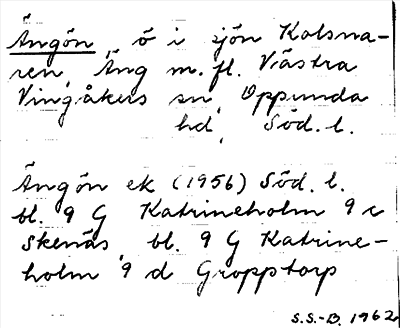 Ängön, ö i sjön Kolsna-
ren, Äng m.fl. Västra
Vingåkers sn, Oppunda
hd, Söd. l.
Ängön ek (1956) Söd. l.
bl. 9 G Katrineholm 9 c
Skenäs, bl. 9 G Katrine-
holm 9 d Gropptorp
S.S.-D. 1962